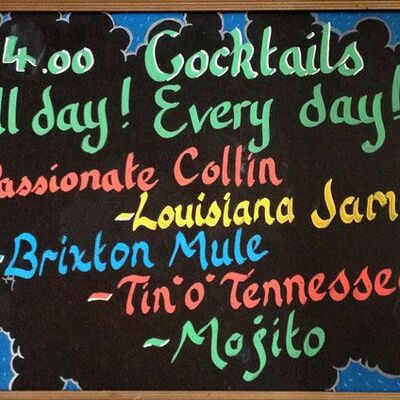 4.00 Cocktails
ll day! Every day!
assionate Collin
-Louisiana Jam
-Brixton Mule
-Tin'O'Tennesse
-Mojito